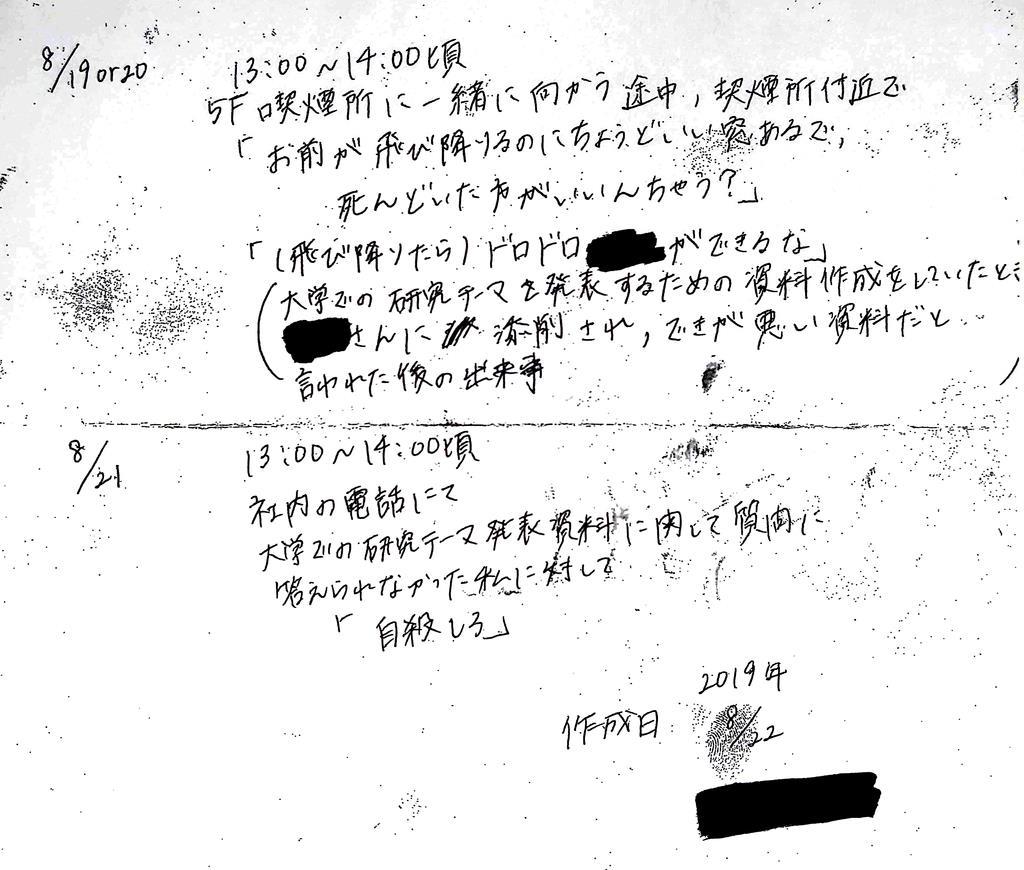 8/19 or 20 13:00～14:00頃
5F 喫煙所に一緒に向かう途中, 喫煙所付近で
「お前が飛び降りるのにちょうどいい窓あるで,
死んどいた方がいいんちゃう?」
「(飛び降りたら) ドロドロ ができるな」
(大学での研究テーマを発表するための資料作成をしていたとき
さんに 添削され, できが悪い資料だと
言われた後の出来事)
8/21 13:00～14:00頃
社内の電話にて
大学での研究テーマ発表資料に関して質問に
答えられなかった私に対して
「自殺しろ」
2019年
作成日 8/22